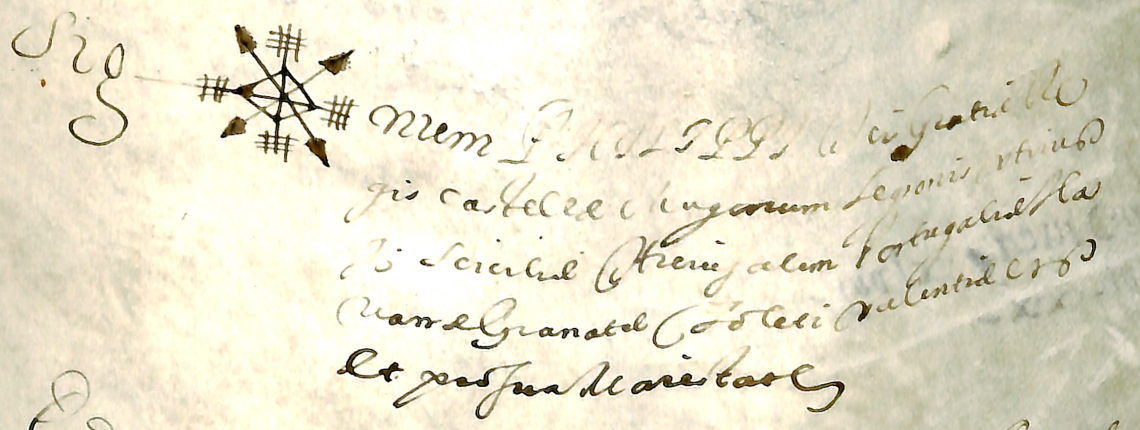 Sig num PHILIPPI Dei Gratiæ Re
gis castellæ Aragonum Legionis utriusq
Siciliæ Hierusalem Portugaliæ Na
varræ Granatæ Toleti valentiæ
Et pro sua Maiestate